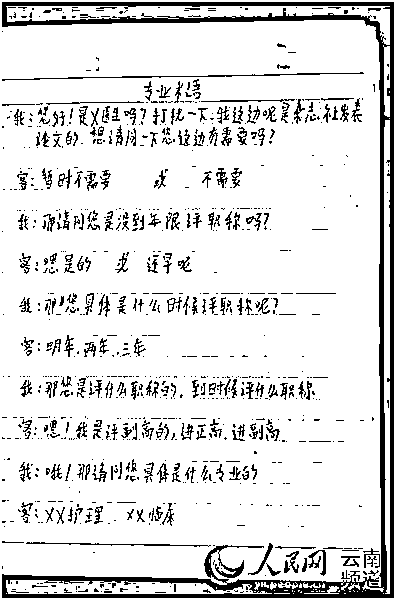 专业术语
我:您好!是X医生吗?打扰一下,我这边呢是杂志社发表
论文的,想请问一下您这边有需要吗?
客:暂时不需要 或 不需要
我:那请问您是没到年限评职称吗?
客:嗯是的 或 还早呢
我:那您具体是什么时候评职称呢?
客:明年,两年,三年
我:那您是评什么职称的,到时候评什么职称
客:嗯!我是评副高的,进正高,进副高
我:哦!那请问您具体是什么专业的
客:XX护理 XX临床
人民网 云南
频道
yn.people.com.cn